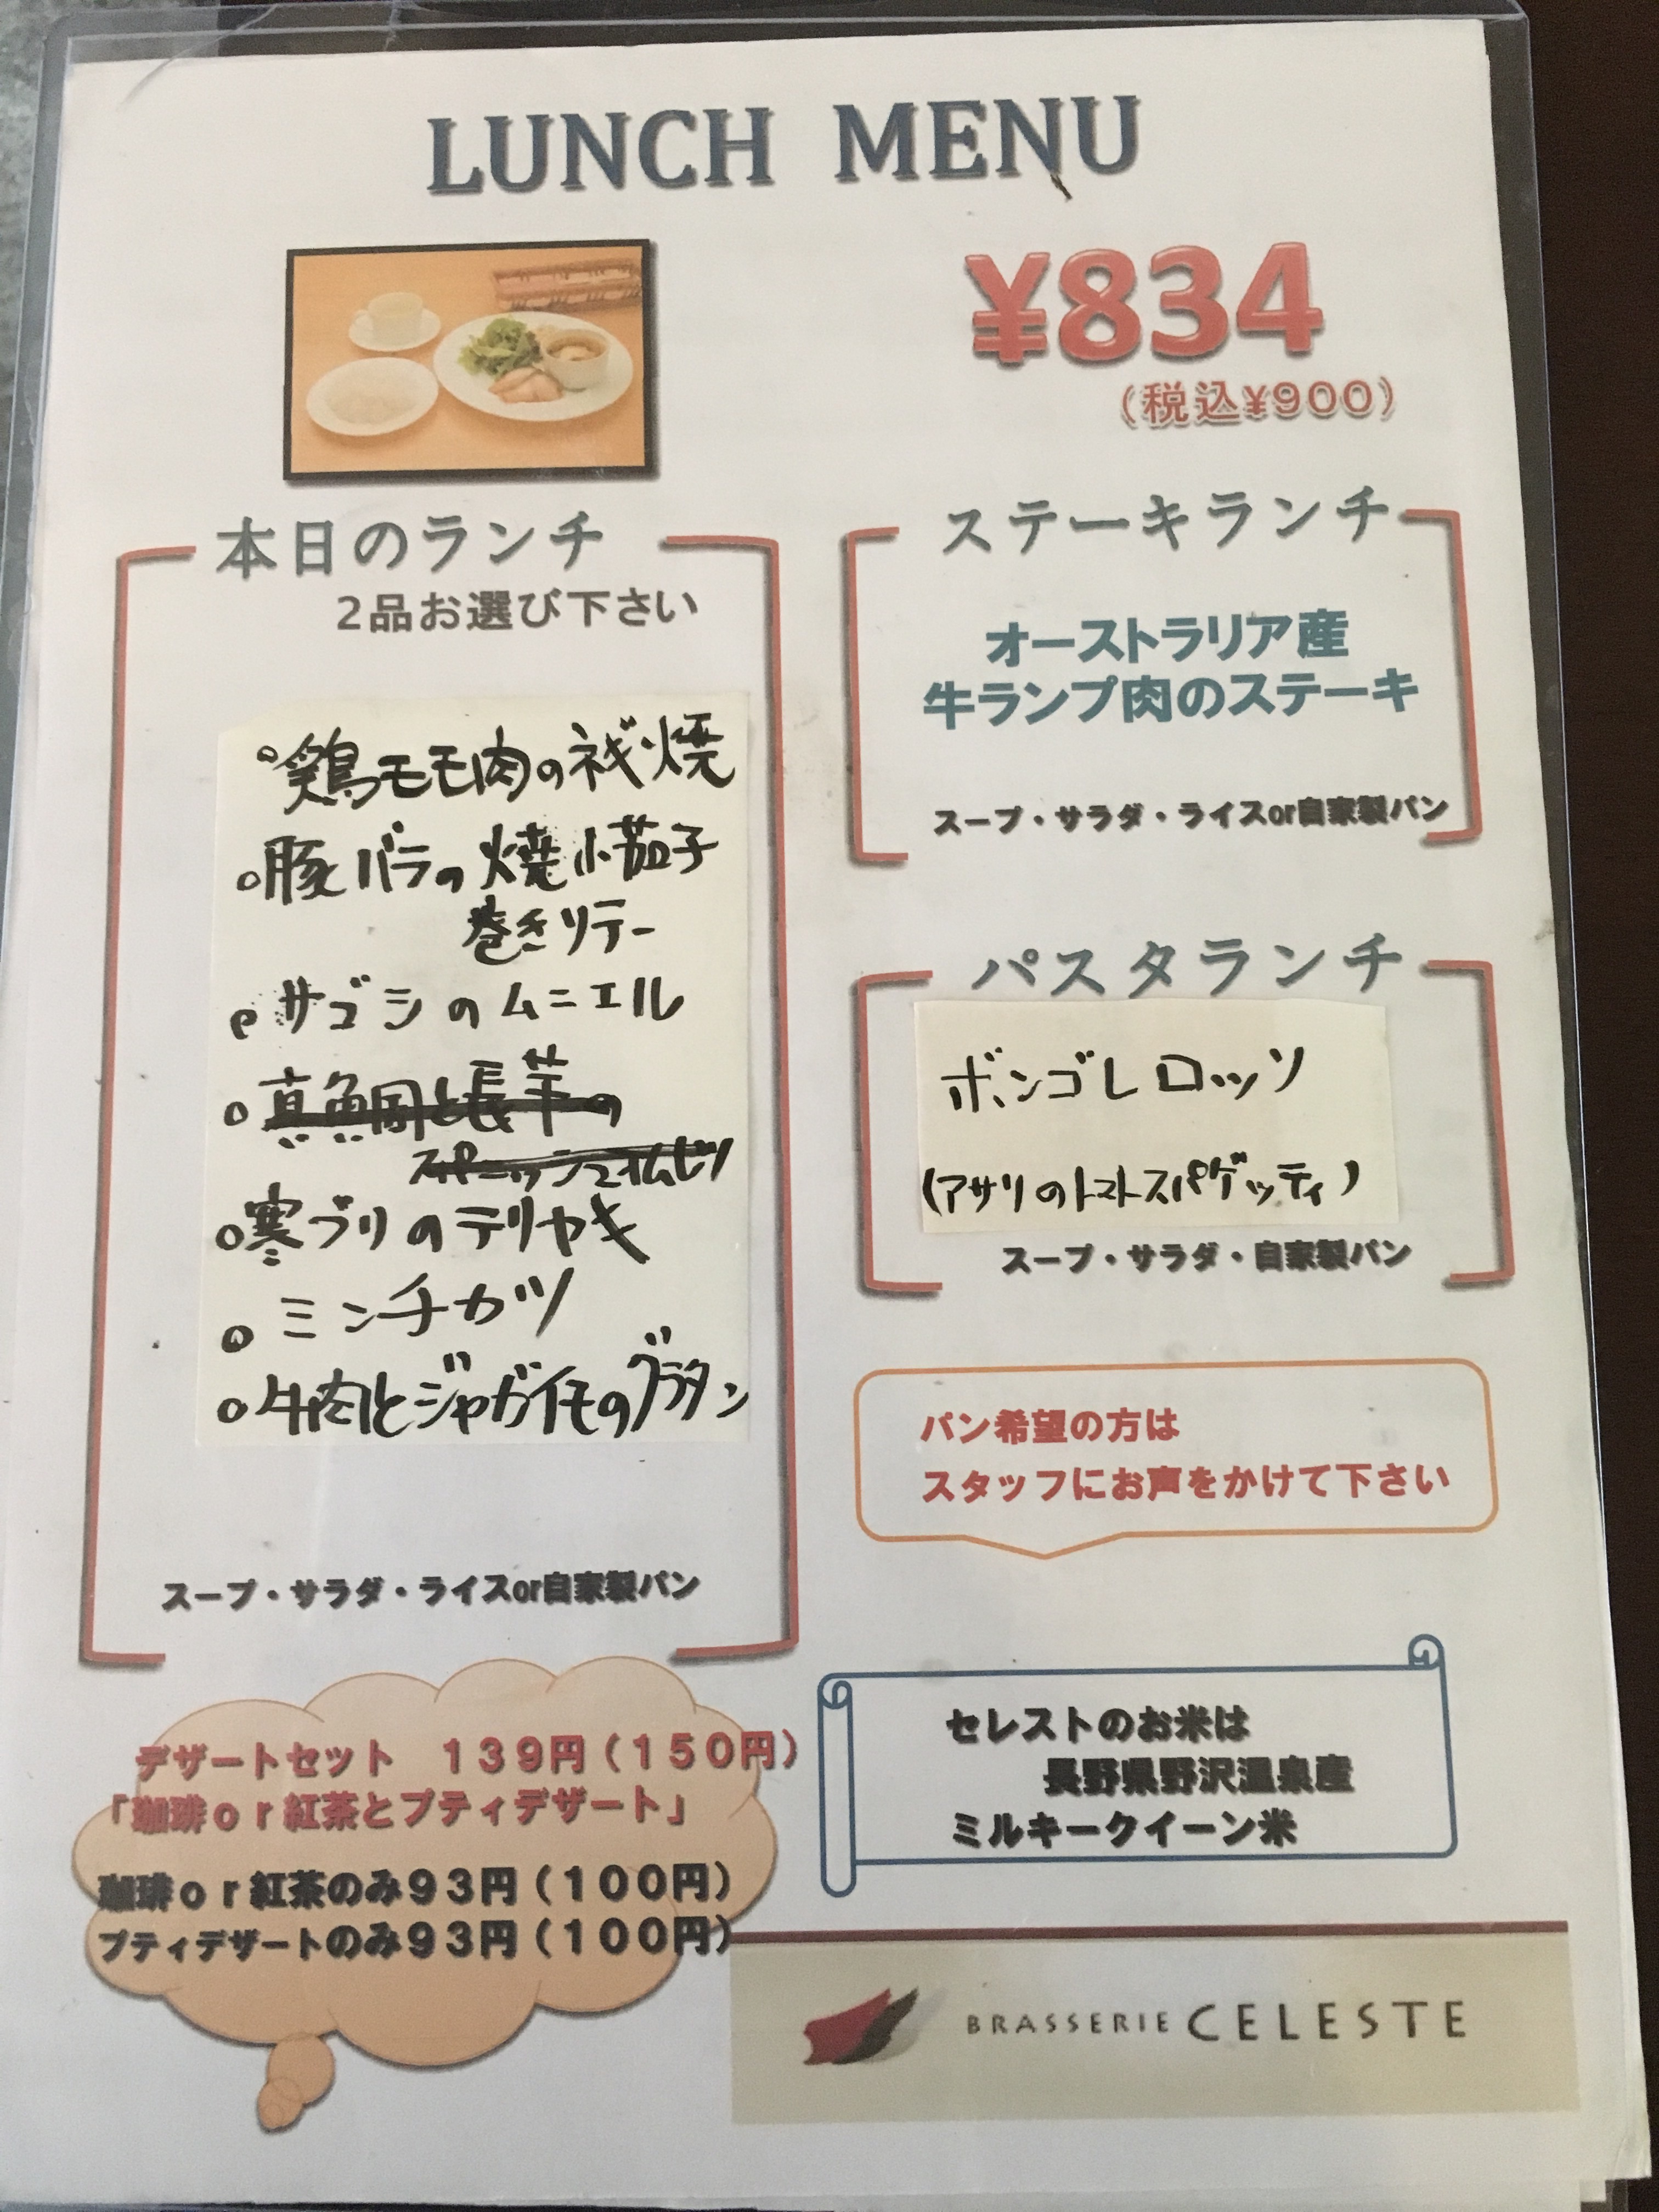 LUNCH MENU
¥834
（税込¥900）
本日のランチ
2品お選び下さい
鶏モモ肉のネギ焼
豚バラの焼小茄子
巻きソテー
サゴシのムニエル
真鯛と長芋の
スパニッシュオムレツ
寒ブリのテリヤキ
ミンチカツ
牛肉とジャガイモのグラタン
スープ・サラダ・ライスor自家製パン
ステーキランチ
オーストラリア産
牛ランプ肉のステーキ
スープ・サラダ・ライスor自家製パン
パスタランチ
ボンゴレロッソ
(アサリのトマトスパゲッティ)
スープ・サラダ・自家製パン
パン希望の方は
スタッフにお声をかけて下さい
デザートセット　１３９円（１５０円）
「珈琲ｏｒ紅茶とプティデザート」
珈琲ｏｒ紅茶のみ９３円（１００円）
プティデザートのみ９３円（１００円）
セレストのお米は
長野県野沢温泉産
ミルキークイーン米
BRASSERIE CELESTE